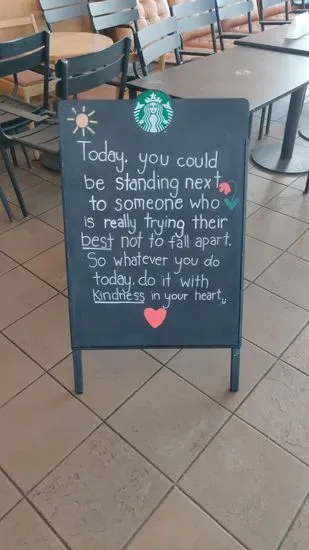 Today, you could
be standing next
to someone who
is really trying their
best not to fall apart.
So whatever you do
today, do it with
kindness in your heart